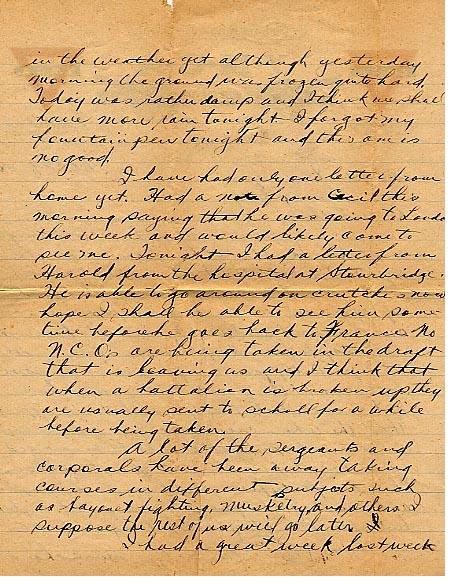 in the weather yet although yesterday
morning the ground was frozen quite hard.
Today was rather damp and I think we shall
have more rain tonight. I forgot my
fountain pen tonight and this one is
no good.
I have had only one letter from
home yet. Had a note from Cecil this
morning saying that he was going to London
this week and would likely come to
see me. Tonight I had a letter from
Harold from the hospital at Stourbridge.
He is able to go around on crutches now
hope I shall be able to see him some-
time before he goes back to France. No
N.C.O.s are being taken in the draft
that is leaving us and I think that
when a battalion is broken up they
are usually sent to scholl for a while
before being taken.
A lot of the sergeants and
corporals have been away taking
courses in different subjects such
as bayonet fighting, musketry, and others. I
suppose the rest of us will go later.
I had a great week last week